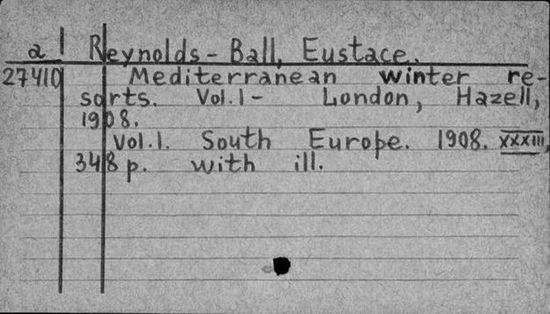 a Reynolds-Ball, Eustace.
27410 Mediterranean winter re-
sorts. Vol.1- London, Hazell,
1908.
Vol.1. South Europe. 1908. XXXIII,
348 p. with ill.